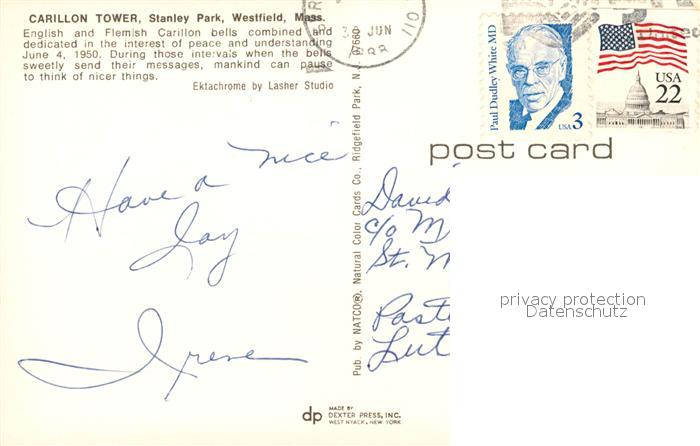 CARILLON TOWER, Stanley Park, Westfield, Mass.
English and Flemish Carillon bells combined and
dedicated in the interest of peace and understanding
June 4, 1950. During those intervals when the bells
sweetly send their messages, mankind can pause
to think of nicer things.
Ektachrome by Lasher Studio
JUN
110
Paul Dudley White MD
USA 3
USA
22
post card
Have a nice
day
Irene
Pub. by NATCO®, Natural Color Cards Co., Ridgefield Park, N.J. 07660
David
c/o M
St. M
Past
Lut
privacy protection
Datenschutz
dp
MADE BY
DEXTER PRESS, INC.
WEST NYACK, NEW YORK